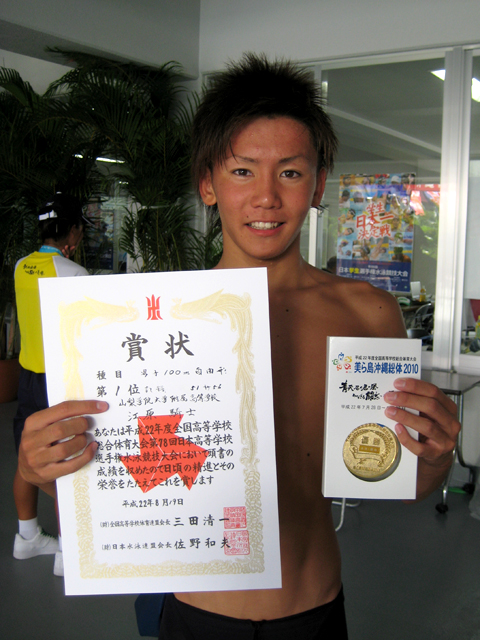 賞状
種目 男子100m自由形
第1位 記録 51秒56
山梨学院大学附属高等学校
江原 騎士
あなたは平成22年度全国高等学校
総合体育大会第78回日本高等学校
選手権水泳競技大会において頭書の
成績を収めたので日頃の精進とその
栄誉をたたえてこれを賞します
平成22年8月19日
(財)全国高等学校体育連盟会長 三田清一
(財)日本水泳連盟会長 佐野和夫
平成22年度全国高等学校総合体育大会
美ら島沖縄総体2010
平成22年7月28日
日本学生選手権水泳競技大会